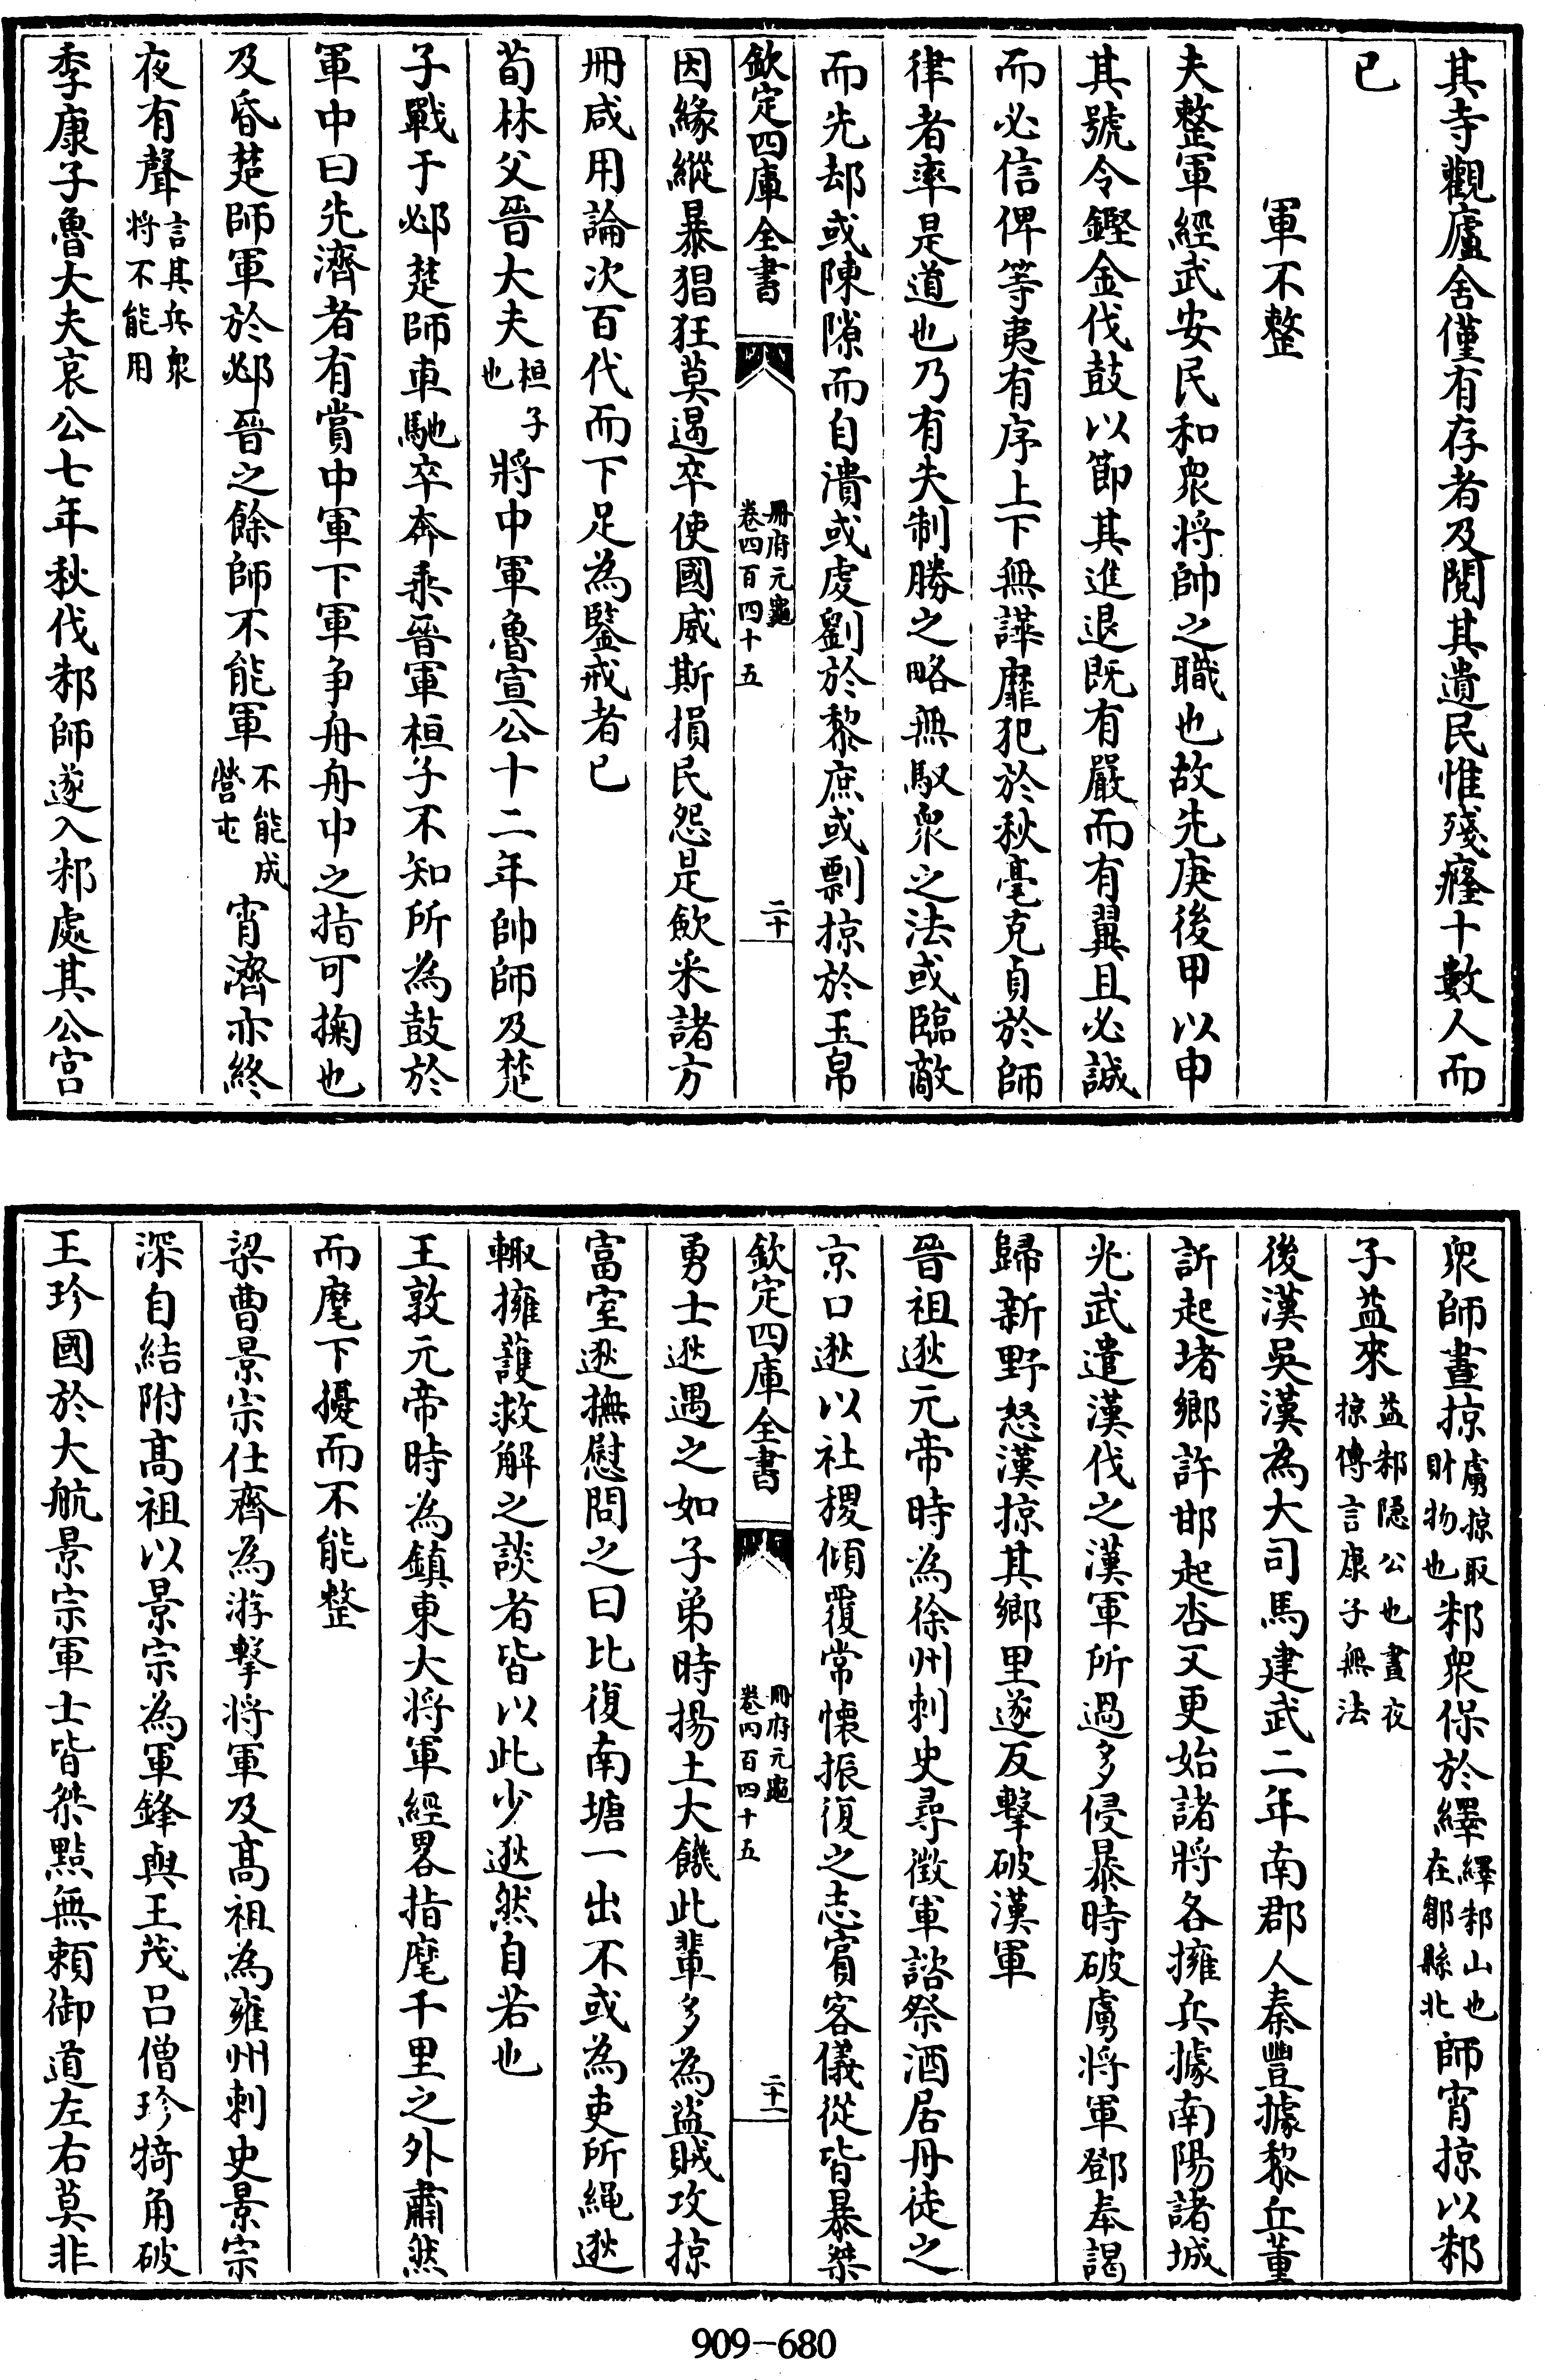 其寺觀廬舍僅有存者及閱其遺民惟殘癃十數人而
已
軍不整
夫整軍經武安民和衆將帥之職也故先庚後甲以申
其號令鏗金伐鼓以節其進退既有嚴而有翼且必誠
而必信俾等夷有序上下無譁靡犯於秋毫克貞於師
律者率是道也乃有失制勝之略無馭衆之法或臨敵
而先却或陳隙而自潰或虔劉於黎庶或剽掠於玉帛
欽定四庫全書
冊府元龜
卷四百四十五
二十
因緣縱暴猖狂莫遏卒使國威斯損民怨是歛釆諸方
冊咸用論次百代而下足為鑒戒者已
荀林父晉大夫桓子也將中軍魯宣公十二年帥師及楚
子戰于邲楚師車馳卒奔乘晉軍桓子不知所為鼓於
軍中曰先濟者有賞中軍下軍争舟舟中之指可掬也
及昏楚師軍於邲晉之餘師不能軍不能成營屯宵濟亦終
夜有聲言其兵衆將不能用
季康子魯大夫哀公七年秋伐邾師遂入邾處其公宫
衆師晝掠虜掠取財物也邾衆保於繹繹邾山也在鄒縣北師宵掠以邾
子益來益邾隠公也晝夜掠傳言康子無法
後漢吳漢為大司馬建武二年南郡人秦豐據黎丘董
訢起堵鄉許邯起杏又更始諸將各擁兵據南陽諸城
光武遣漢伐之漢軍所過多侵暴時破虜將軍鄧奉謁
歸新野怒漢掠其鄉里遂反擊破漢軍
晉祖逖元帝時為徐州刺史尋徵軍諮祭酒居丹徒之
京口逖以社稷傾覆常懷振復之志賓客儀從皆暴桀
欽定四庫全書
冊府元龜
卷四百四十五
二十一
勇士逖遇之如子弟時揚土大饑此輩多為盜賊攻掠
富室逖撫慰問之曰比復南塘一出不或為吏所繩逖
輙擁護救解之談者皆以此少逖然自若也
王敦元帝時為鎮東大將軍經畧指麾千里之外肅然
而麾下擾而不能整
梁曹景宗仕齊為游擊將軍及髙祖為雍州刺史景宗
深自結附髙祖以景宗為軍鋒與王茂吕僧珍犄角破
王珍國於大航景宗軍士皆桀黠無賴御道左右莫非
909-680